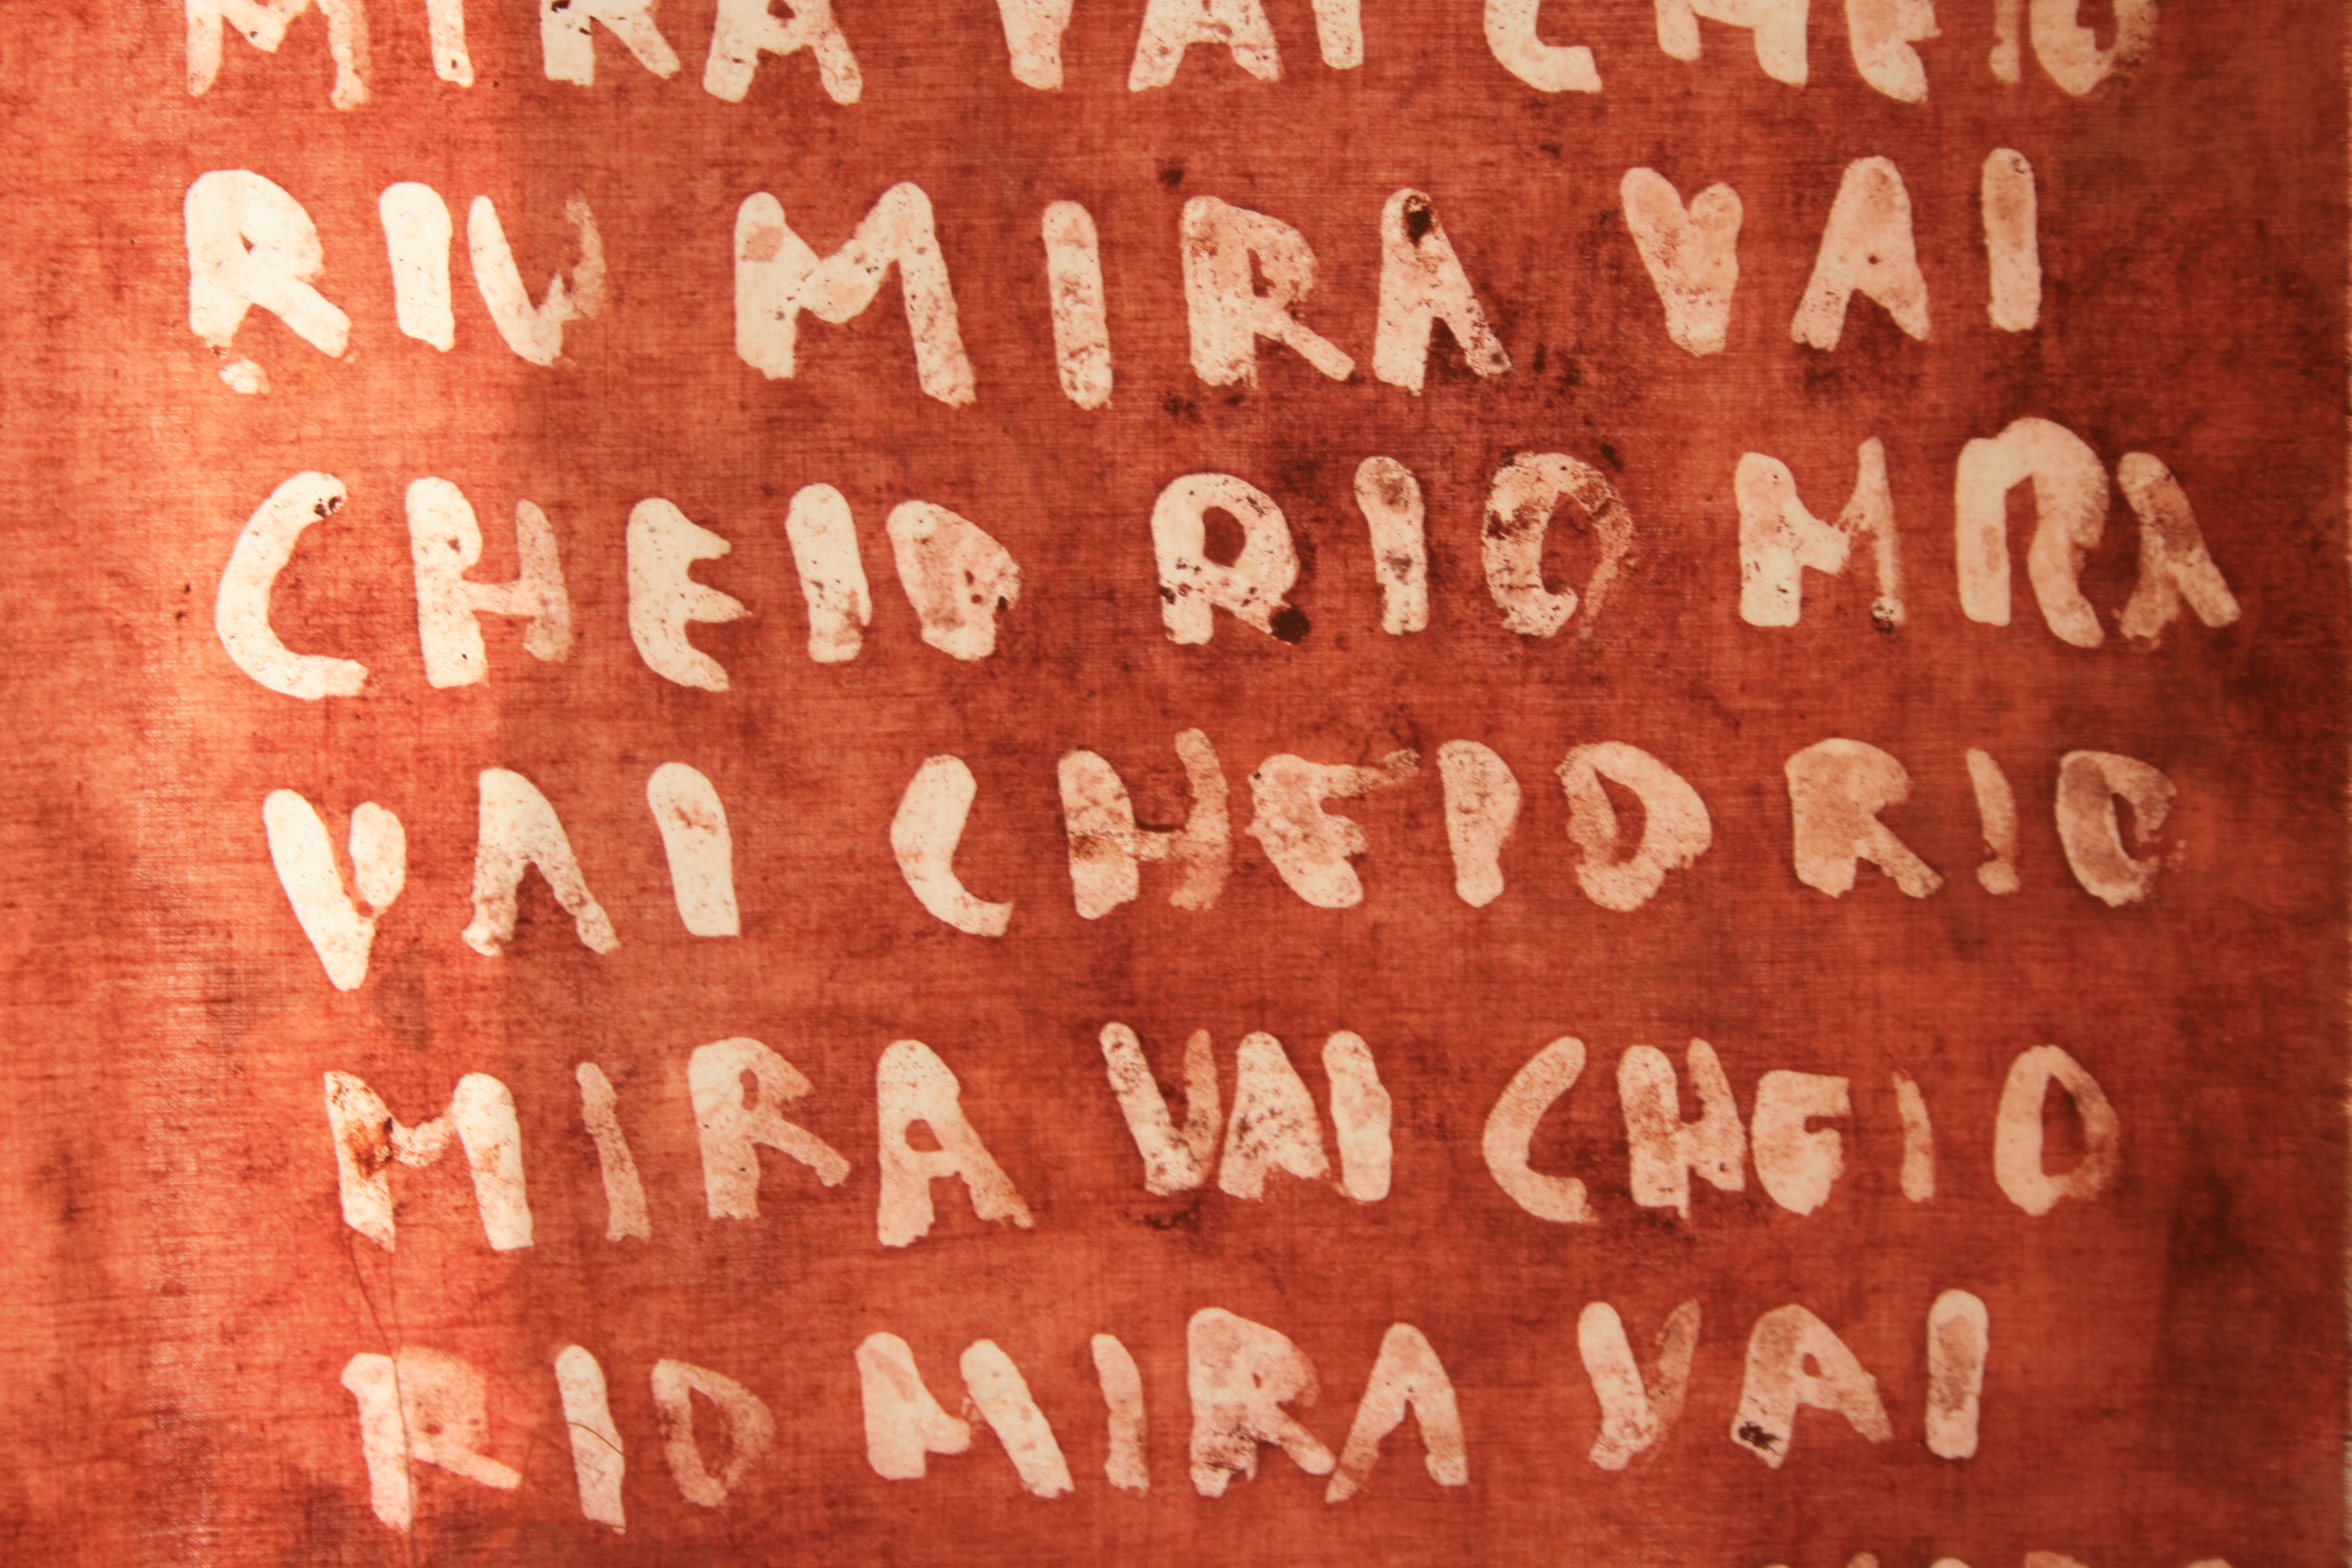 MIRA VAI CHEIO
RIO MIRA VAI
CHEIO RIO MRA
VAI CHEIO RIO
MIRA VAI CHEIO
RIO MIRA VAI